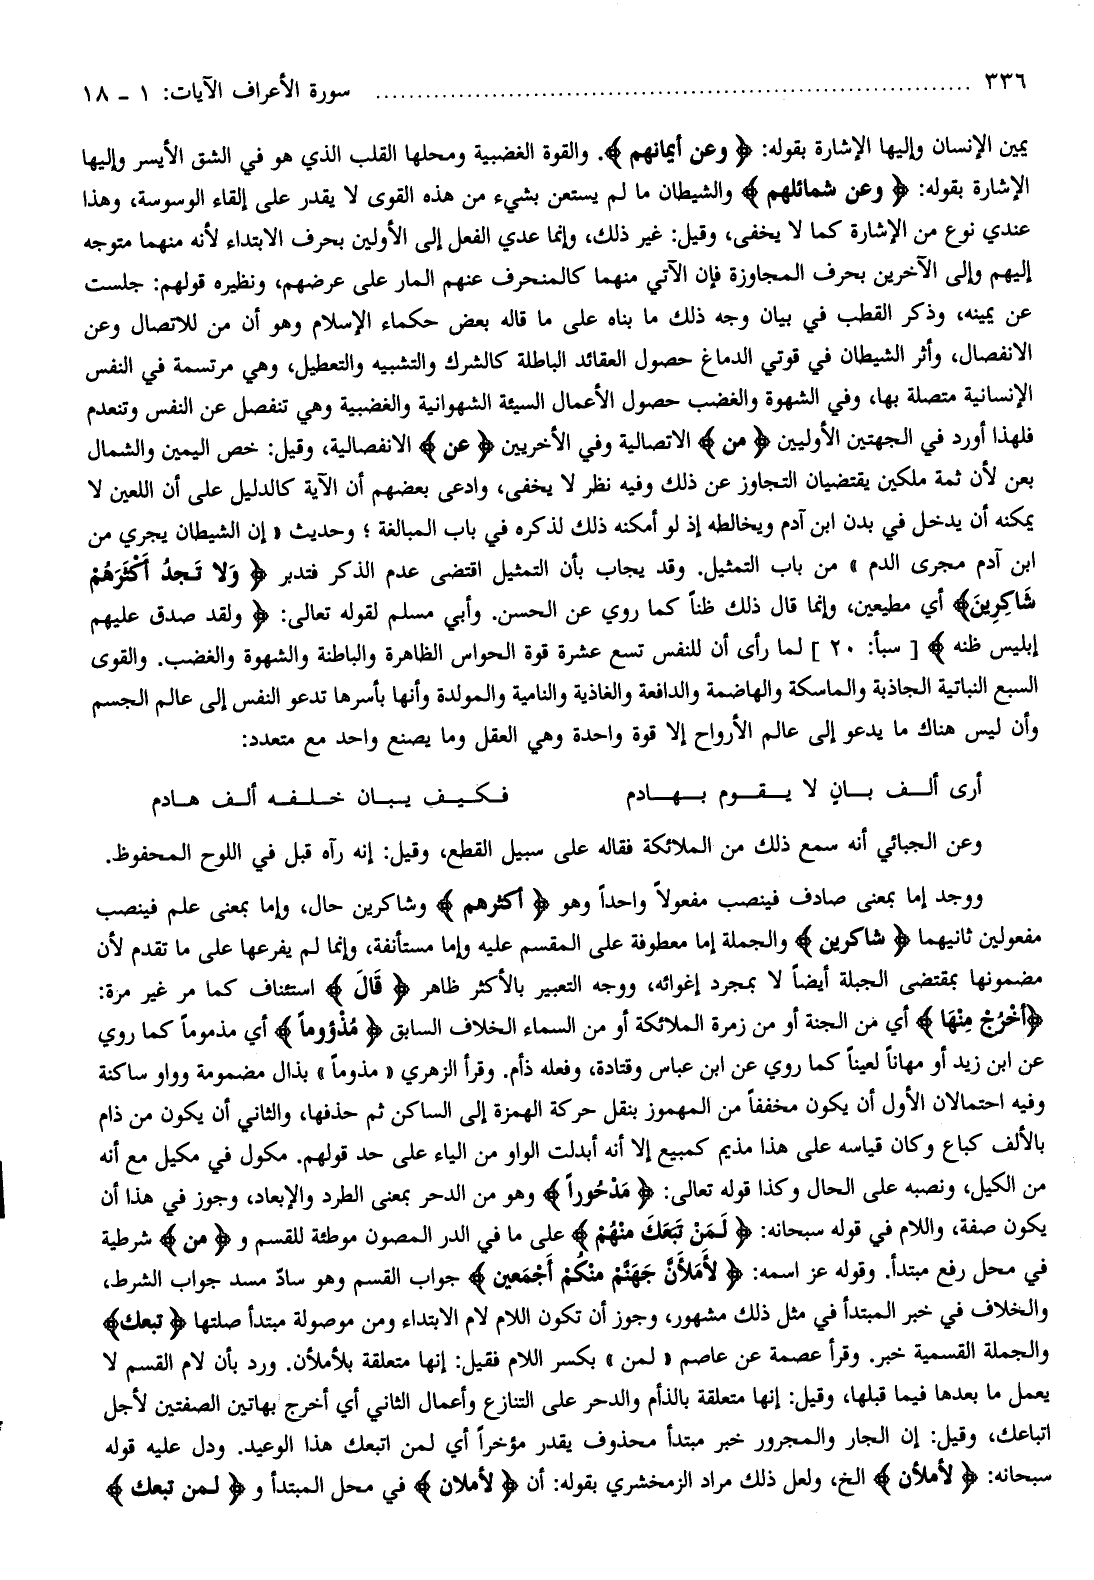 ٣٣٦ ........................................................................ سورة الأعراف الآيات: ١ - ١٨
يمين الإنسان وإليها الإشارة بقوله: ﴿ وعن أيمانهم ﴾. والقوة الغضبية ومحلها القلب الذي هو في الشق الأيسر وإليها
الإشارة بقوله: ﴿ وعن شمائلهم ﴾ والشيطان ما لم يستعن بشيء من هذه القوى لا يقدر على إلقاء الوسوسة، وهذا
عندي نوع من الإشارة كما لا يخفى، وقيل: غير ذلك، وإنما عدي الفعل إلى الأولين بحرف الابتداء لأنه منهما متوجه
إليهم وإلى الآخرين بحرف المجاوزة فإن الآتي منهما كالمنحرف عنهم المار على عرضهم، ونظيره قولهم: جلست
عن يمينه، وذكر القطب في بيان وجه ذلك ما بناه على ما قاله بعض حكماء الإسلام وهو أن من للاتصال وعن
الانفصال، وأثر الشيطان في قوتي الدماغ حصول العقائد الباطلة كالشرك والتشبيه والتعطيل، وهي مرتسمة في النفس
الإنسانية متصلة بها، وفي الشهوة والغضب حصول الأعمال السيئة الشهوانية والغضبية وهي تنفصل عن النفس وتنعدم
فلهذا أورد في الجهتين الأوليين ﴿ من ﴾ الاتصالية وفي الأخريين ﴿ عن ﴾ الانفصالية، وقيل: خص اليمين والشمال
بعن لأن ثمة ملكين يقتضيان التجاوز عن ذلك وفيه نظر لا يخفى، وادعى بعضهم أن الآية كالدليل على أن اللعين لا
يمكنه أن يدخل في بدن ابن آدم ويخالطه إذ لو أمكنه ذلك لذكره في باب المبالغة ؛ وحديث « إن الشيطان يجري من
ابن آدم مجرى الدم » من باب التمثيل. وقد يجاب بأن التمثيل اقتضى عدم الذكر فتدبر ﴿ وَلا تَجدُ أَكْثَرَهُمْ
شَاكِرِينَ﴾ أي مطيعين، وإنما قال ذلك ظناً كما روي عن الحسن. وأبي مسلم لقوله تعالى: ﴿ ولقد صدق عليهم
إبليس ظنه ﴾ [ سبأ: ٢٠ ] لما رأى أن للنفس تسع عشرة قوة الحواس الظاهرة والباطنة والشهوة والغضب. والقوى
السبع النباتية الجاذبة والماسكة والهاضمة والدافعة والغاذية والنامية والمولدة وأنها بأسرها تدعو النفس إلى عالم الجسم
وأن ليس هناك ما يدعو إلى عالم الأرواح إلا قوة واحدة وهي العقل وما يصنع واحد مع متعدد:
أرى ألف بانٍ لا يقوم بهادم فكيف ببان خلفه ألف هادم
وعن الجبائي أنه سمع ذلك من الملائكة فقاله على سبيل القطع، وقيل: إنه رآه قبل في اللوح المحفوظ.
ووجد إما بمعنى صادف فينصب مفعولاً واحداً وهو ﴿ أكثرهم ﴾ وشاكرين حال، وإما بمعنى علم فينصب
مفعولين ثانيهما ﴿ شاكرين ﴾ والجملة إما معطوفة على المقسم عليه وإما مستأنفة، وإنما لم يفرعها على ما تقدم لأن
مضمونها بمقتضى الجبلة أيضاً لا بمجرد إغوائه، ووجه التعبير بالأكثر ظاهر ﴿ قَالَ ﴾ استئناف كما مر غير مرة:
﴿أخْرُجْ مِنْهَا ﴾ أي من الجنة أو من زمرة الملائكة أو من السماء الخلاف السابق ﴿ مُذْؤوماً ﴾ أي مذموماً كما روي
عن ابن زيد أو مهاناً لعيناً كما روي عن ابن عباس وقتادة، وفعله ذأم. وقرأ الزهري « مذوماً » بذال مضمومة وواو ساكنة
وفيه احتمالان الأول أن يكون مخففاً من المهموز بنقل حركة الهمزة إلى الساكن ثم حذفها، والثاني أن يكون من ذام
بالألف كباع وكان قياسه على هذا مذيم كمبيع إلا أنه أبدلت الواو من الياء على حد قولهم. مكول في مكيل مع أنه
من الكيل، ونصبه على الحال وكذا قوله تعالى: ﴿ مَدْحُوراً ﴾ وهو من الدحر بمعنى الطرد والإبعاد، وجوز في هذا أن
يكون صفة، واللام في قوله سبحانه: ﴿ لَمَنْ تَبَعَكَ منْهُمْ ﴾ على ما في الدر المصون موطئة للقسم و ﴿ من ﴾ شرطية
في محل رفع مبتدأ. وقوله عز اسمه: ﴿ لأَمَلأَنَّ جَهَنَّمَ منْكُمْ أَجْمَعين ﴾ جواب القسم وهو سادّ مسد جواب الشرط،
والخلاف في خبر المبتدأ في مثل ذلك مشهور، وجوز أن تكون اللام لام الابتداء ومن موصولة مبتدأ صلتها ﴿ تبعك﴾
والجملة القسمية خبر. وقرأ عصمة عن عاصم « لمن » بكسر اللام فقيل: إنها متعلقة بلأملأن. ورد بأن لام القسم لا
يعمل ما بعدها فيما قبلها، وقيل: إنها متعلقة بالذأم والدحر على التنازع وأعمال الثاني أي أخرج بهاتين الصفتين لأجل
اتباعك، وقيل: إن الجار والمجرور خبر مبتدأ محذوف يقدر مؤخراً أي لمن اتبعك هذا الوعيد. ودل عليه قوله
سبحانه: ﴿ لأملأن ﴾ الخ، ولعل ذلك مراد الزمخشري بقوله: أن ﴿ لأملان ﴾ في محل المبتدأ و ﴿ لمن تبعك ﴾